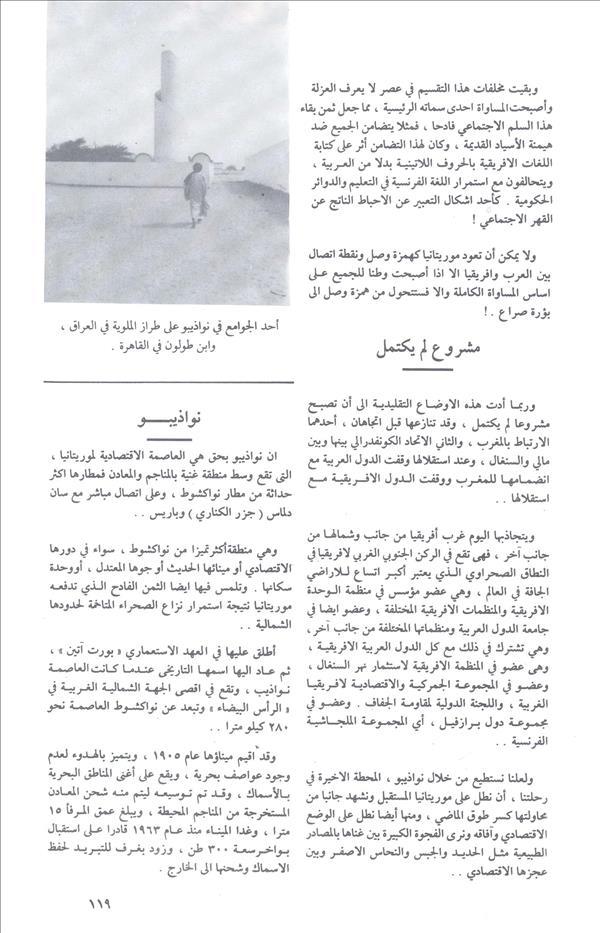 وبقيت مخلفات هذا التقسيم في عصر لا يعرف العزلة
وأصبحت المساواة احدى سماته الرئيسية ، مما جعل ثمن بقاء
هذا السلم الاجتماعي فادحا ، فمثلا يتضامن الجميع ضد
هيمنة الأسياد القديمة ، وكان لهذا التضامن أثر على كتابة
اللغات الافريقية بالحروف اللاتينية بدلا من العربية ،
ويتحالفون مع استمرار اللغة الفرنسية في التعليم والدوائر
الحكومية . كأحد اشكال التعبير عن الاحباط الناتج عن
القهر الاجتماعي !
ولا يمكن أن تعود موريتانيا كهمزة وصل ونقطة اتصال
بين العرب وافريقيا الا اذا أصبحت وطنا للجميع على
اساس المساواة الكاملة والا فستتحول من همزة وصل الى
بؤرة صراع . !
مشروع لم يكتمل
وربما أدت هذه الاوضاع التقليدية الى أن تصبح
مشروعا لم يكتمل ، وقد تنازعها قبل اتجاهان ، أحدهما
الارتباط بالمغرب ، والثاني الاتحاد الكونفدرالي بينها وبين
مالي والسنغال ، وعند استقلالها وقفت الدول العربية مع
انضمامها للمغرب ووقفت الدول الافريقية مع
استقلالها . .
ويتجاذبها اليوم غرب أفريقيا من جانب وشمالها من
جانب آخر ، فهى تقع في الركن الجنوبي الغربي لافريقيا في
النطاق الصحراوي الذي يعتبر أكبر اتساع للاراضي
الجافة في العالم ، وهي عضو مؤسس في منظمة الوحدة
الافريقية والمنظمات الافريقية المختلفة ، وعضو ايضا في
جامعة الدول العربية ومنظماتها المختلفة من جانب آخر ،
وهي تشترك في ذلك مع كل الدول العربية الافريقية ،
وهى عضو في المنظمة الافريقية لاستثمار نهر السنغال ،
وعضو في المجموعة الجمركية والاقتصادية لافريقيا
الغربية ، واللجنة الدولية لمقاومة الجفاف . وعضو في
مجموعة دول برازفيل ، أي المجموعة الملجاشية
الفرنسية . .
ولعلنا نستطيع من خلال نواذيبو ، المحطة الاخيرة في
رحلتنا ، أن نطل على موريتانيا المستقبل ونشهد جانبا من
محاولتها كسر طوق الماضي ، ومنها أيضا نطل على الوضع
الاقتصادي وآفاقه ونرى الفجوة الكبيرة بين غناها بالمصادر
الطبيعية مثل الحديد والجبس والنحاس الاصفر وبين
عجزها الاقتصادي . .
أحد الجوامع في نواذيبو على طراز الملوية في العراق ،
وابن طولون في القاهرة .
نواذيبـــو
ان نواذيبو بحق هي العاصمة الاقتصادية لموريتانيا ،
التى تقع وسط منطقة غنية بالمناجم والمعادن فمطارها اكثر
حداثة من مطار نواكشوط ، وعلى اتصال مباشر مع سان
دلماس ( جزر الكناري ) وباريس . .
وهي منطقة أكثر تميزا من نواكشوط ، سواء في دورها
الاقتصادي أو مينائها الحديث أو جوها المعتدل ، أووحدة
سكانها . وتلمس فيها ايضا الثمن الفادح الذي تدفعه
موريتانيا نتيجة استمرار نزاع الصحراء المتاخمة لحدودها
الشمالية . .
أطلق عليها في العهد الاستعماري « بورت آتين » ،
ثم عاد اليها اسمها التاريخى عندما كانت العاصمة
نواذيب ، وتقع في اقصى الجهة الشمالية الغربية في
« الرأس البيضاء » وتبعد عن نواكشوط العاصمة نحو
٢٨٠ كيلو مترا . .
وقد اقيم ميناؤها عام ١٩٠٥ ، ويتميز بالهدوء لعدم
وجود عواصف بحرية ، ويقع على أغنى المناطق البحرية
بالأسماك ، وقد تم توسيعه ليتم منه شحن المعادن
المستخرجة من المناجم المحيطة ، ويبلغ عمق المرفأ ١٥
مترا ، وغدا الميناء منذ عام ١٩٦٣ قادرا على استقبال
بواخر سعة ٣٠٠ طن ، وزود بغرف للتبريد لحفظ
الاسماك وشحنها الى الخارج .
١١٩